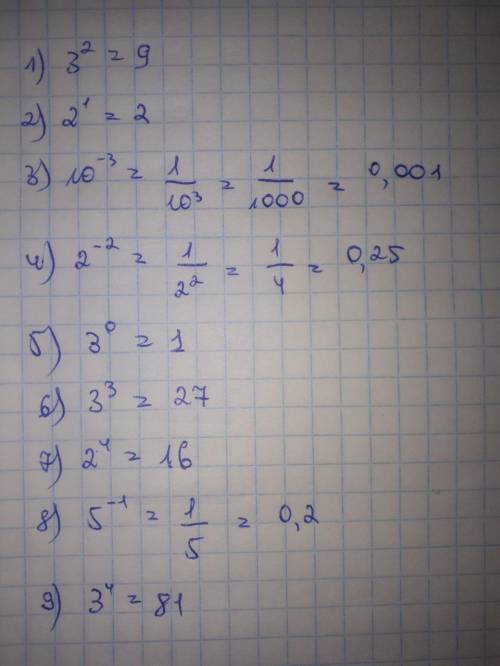 1) 3² = 9
2) 2¹ = 2
3) 10⁻³ = 1/10³ = 1/1000 = 0,001
4) 2⁻² = 1/2² = 1/4 = 0,25
5) 3⁰ = 1
6) 3³ = 27
7) 2⁴ = 16
8) 5⁻¹ = 1/5 = 0,2
9) 3⁴ = 81